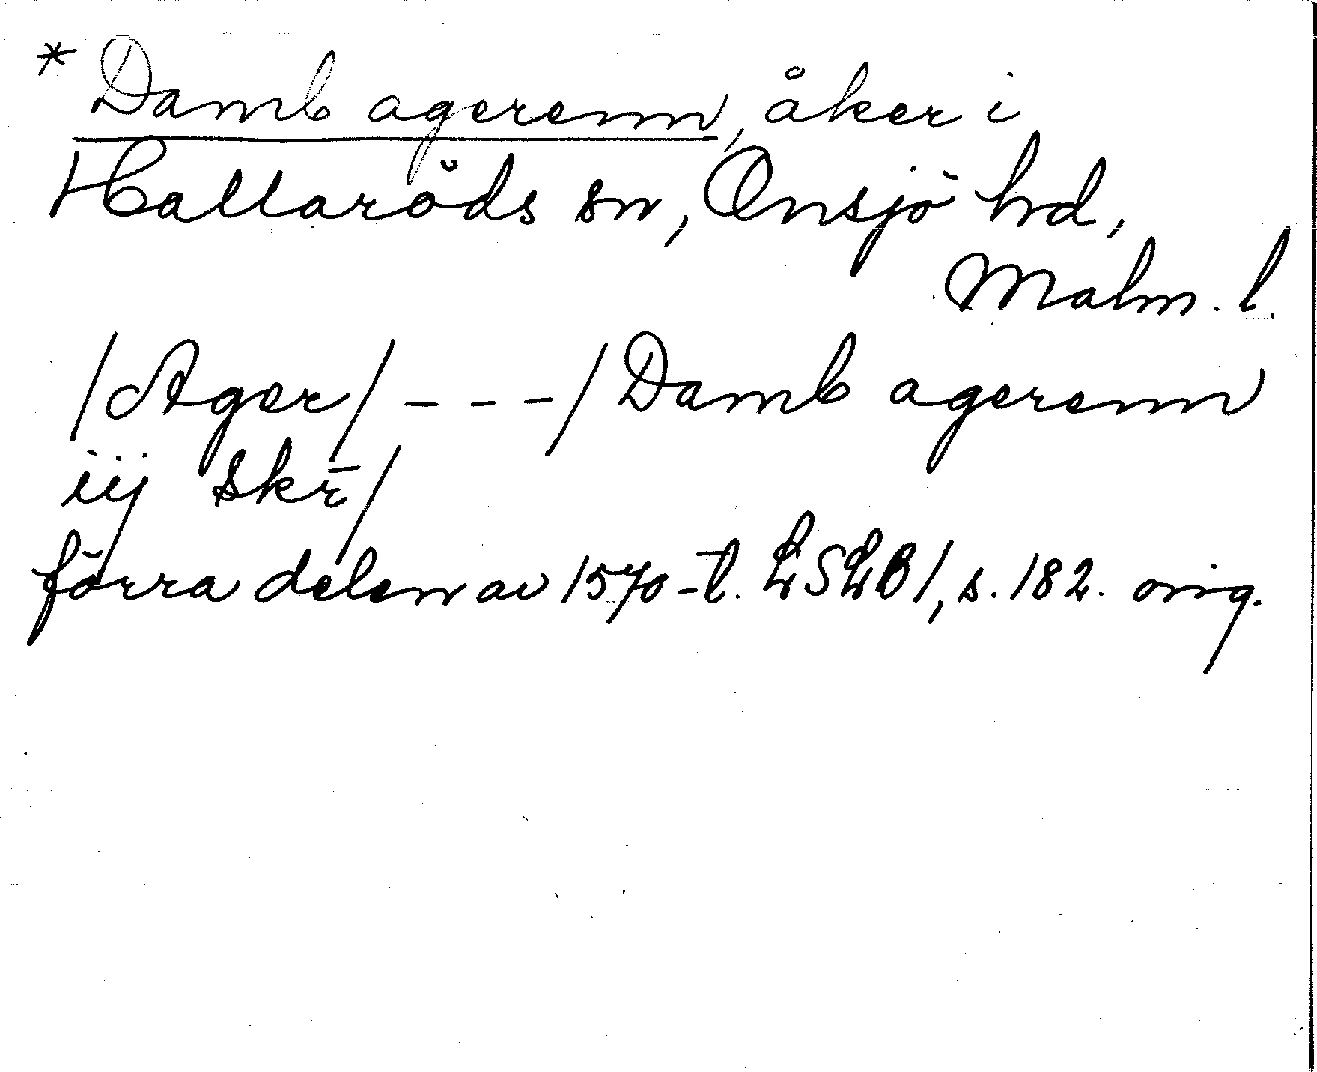 * Damb agerenn, åker i
Hallaröds sn, Onsjö hd,
Malm. l.
/Ager/ - - - / Damb agerenn
iij skr̄/
förra delen av 1570-t. LSLB 1, s. 182. orig.